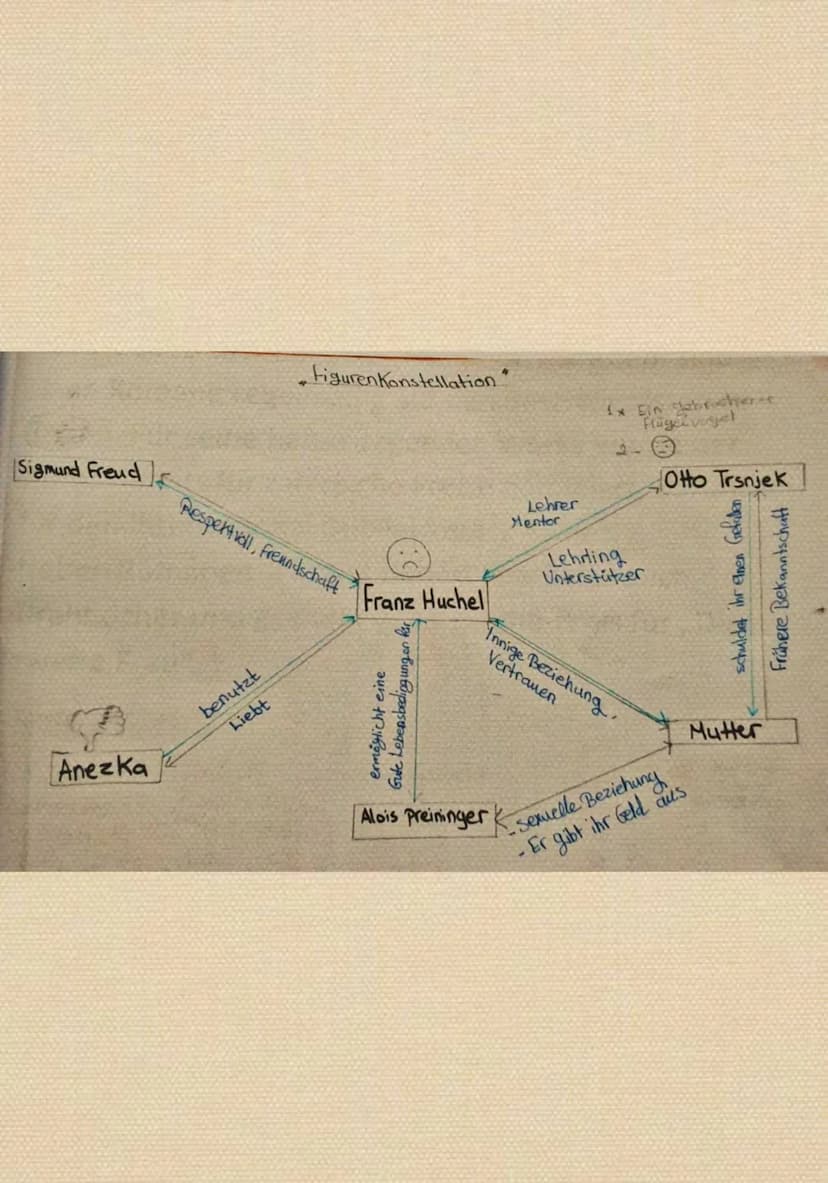 "Figurenkonstellation"
1x Ein gebrochener
Flügel vogel
2-
Sigmund Freud
Otto Trsnjek
Respektvoll, Freundschaft
Lehrer
Mentor
Lehrling
Unterstützer
schuldet ihr einen Gefallen
Frühere Bekanntschaft
Franz Huchel
benutzt
Liebt
ermöglicht eine
Gute Lebensbedingungen für
Innige Beziehung
Vertrauen
Mutter
Anezka
Alois Preininger
- sexuelle Beziehung
- Er gibt ihr Geld aus